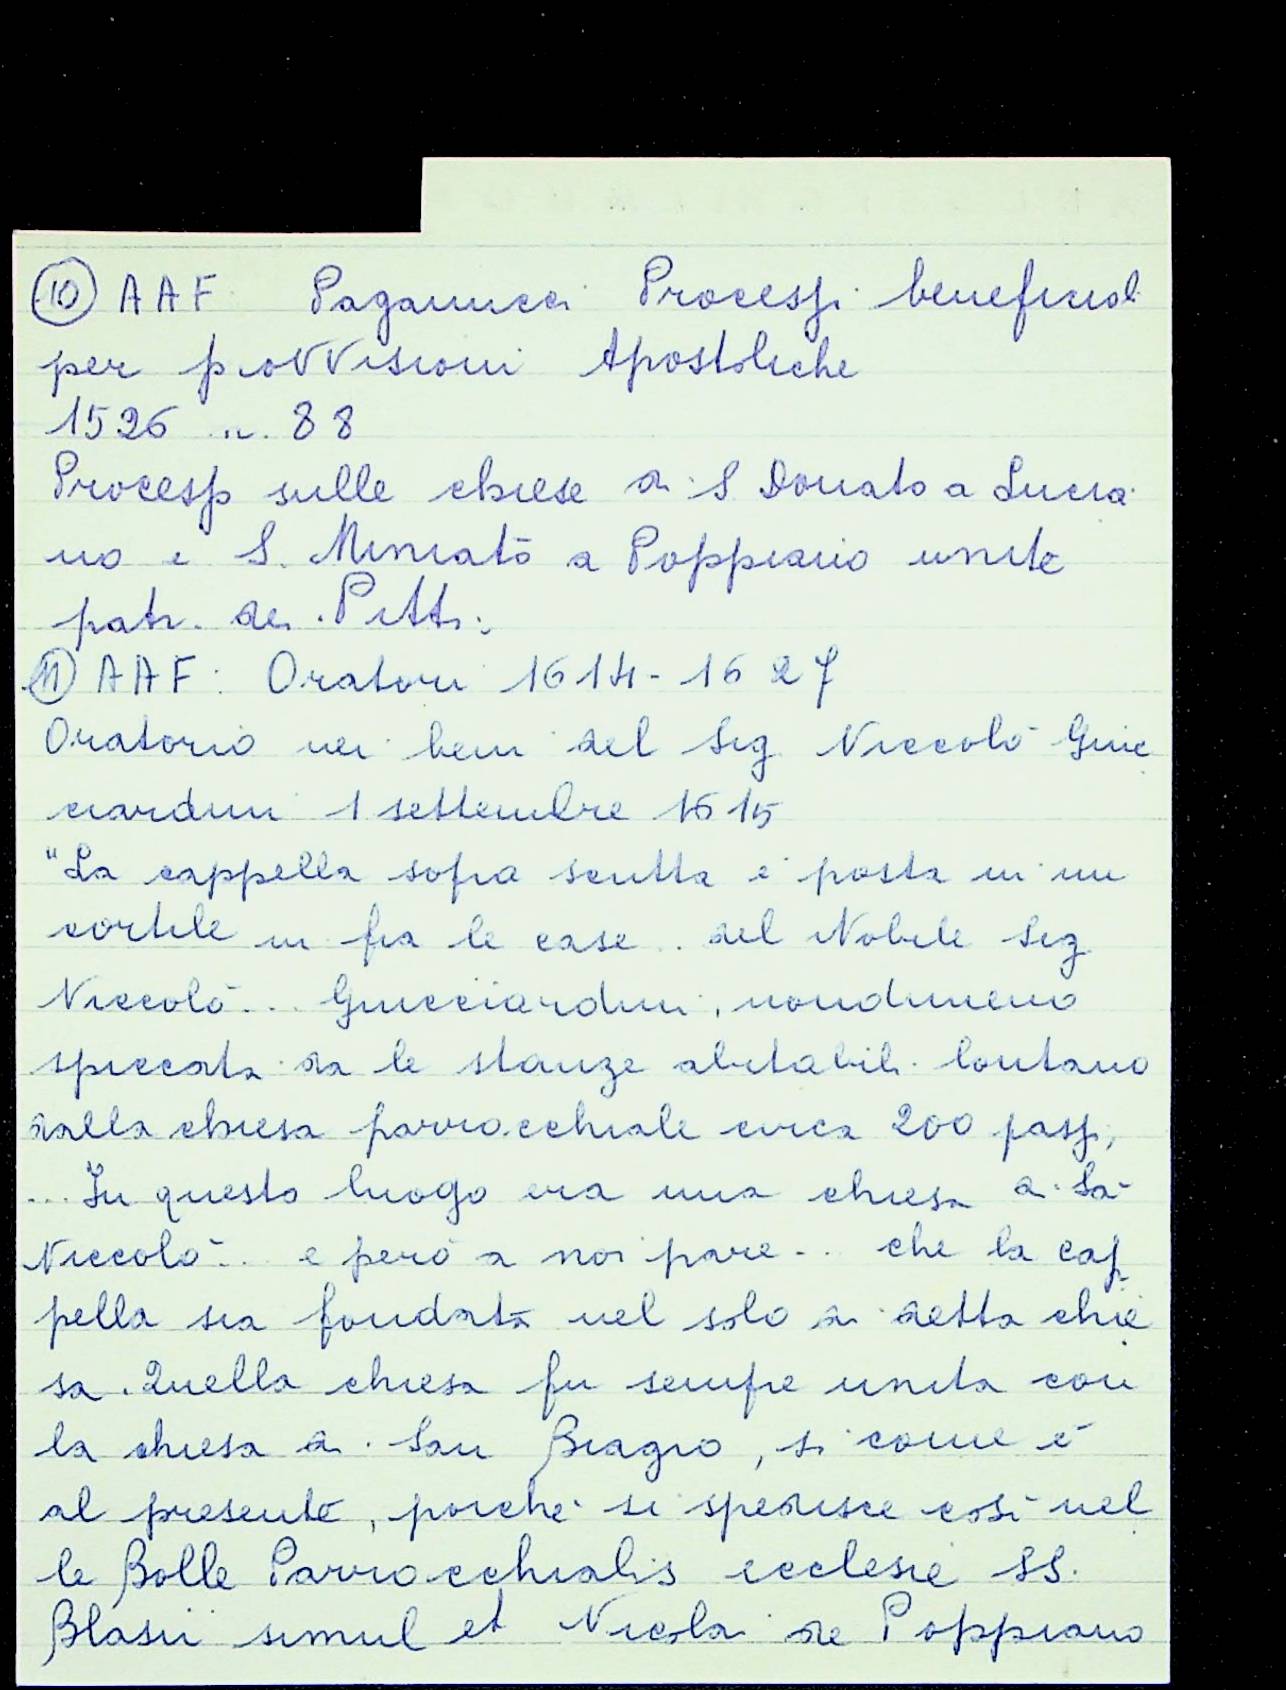 10 AAF Paganucci Processi beneficial
per provvisioni Apostoliche
1526 n. 88
Processo sulle chiese di S Donato a Lucia
no e S. Miniato a Poppiano unite
patr. dei Pitti.
11 AAF: Oratori 1614-1627
Oratorio nei beni del Sig Niccolò Guic
ciardini 1 settembre 1615
"La cappella sopra scritta è posta in un
cortile in fra le case .. del Nobile Sig
Niccolò... Guicciardini, nondimeno
spiccata da le stanze abitabili lontano
dalla chiesa parrocchiale circa 200 passi,
... In questo luogo era una chiesa di Sa
Niccolò... e però a noi pare... che la cap
pella sia fondata nel solo di detta chie
sa. Quella chiesa fu sempre unita con
la chiesa di San Biagio, si come è
al presente, poiché si spedisce così nel
le Bolle Parrocchialis ecclesie SS.
Blasii simul et Nicolai de Poppiano